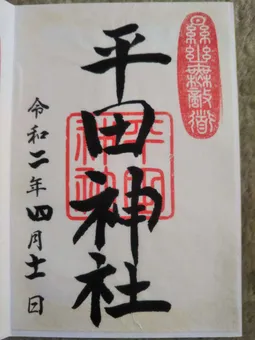 平田神社
平田
神社
令和二年四月十一日